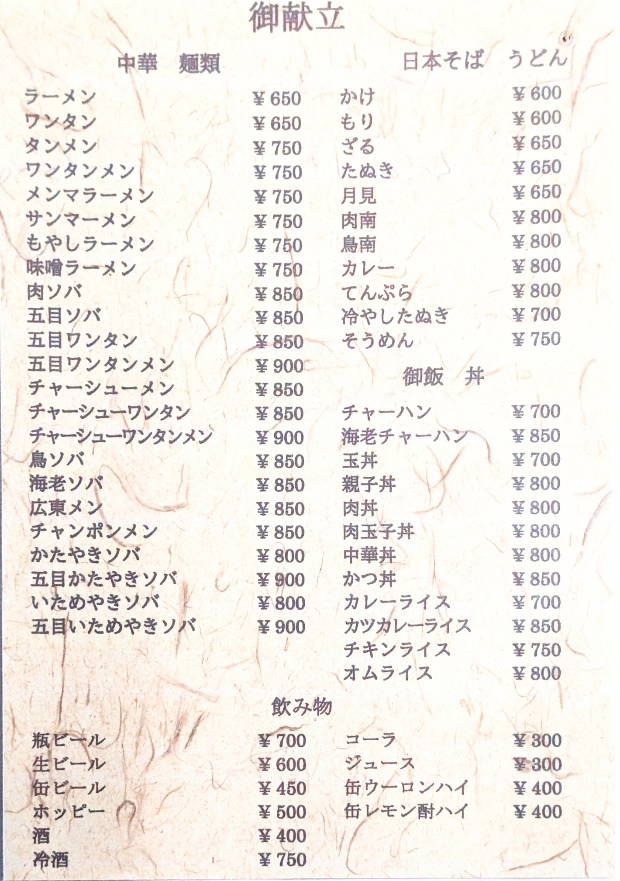 御献立
中華 麺類
ラーメン ¥650
ワンタン ¥650
タンメン ¥750
ワンタンメン ¥750
メンマラーメン ¥750
サンマーメン ¥750
もやしラーメン ¥750
味噌ラーメン ¥750
肉ソバ ¥850
五目ソバ ¥850
五目ワンタン ¥850
五目ワンタンメン ¥900
チャーシューメン ¥850
チャーシューワンタン ¥850
チャーシューワンタンメン ¥900
鳥ソバ ¥850
海老ソバ ¥850
広東メン ¥850
チャンポンメン ¥850
かたやきソバ ¥800
五目かたやきソバ ¥900
いためやきソバ ¥800
五目いためやきソバ ¥900
日本そば うどん
かけ ¥600
もり ¥600
ざる ¥650
たぬき ¥650
月見 ¥650
肉南 ¥800
鳥南 ¥800
カレー ¥800
てんぷら ¥800
冷やしたぬき ¥700
そうめん ¥750
御飯 丼
チャーハン ¥700
海老チャーハン ¥850
玉丼 ¥700
親子丼 ¥800
肉丼 ¥800
肉玉子丼 ¥800
中華丼 ¥800
かつ丼 ¥850
カレーライス ¥700
カツカレーライス ¥850
チキンライス ¥750
オムライス ¥800
飲み物
瓶ビール ¥700
生ビール ¥600
缶ビール ¥450
ホッピー ¥500
酒 ¥400
冷酒 ¥750
コーラ ¥300
ジュース ¥300
缶ウーロンハイ ¥400
缶レモン酎ハイ ¥400